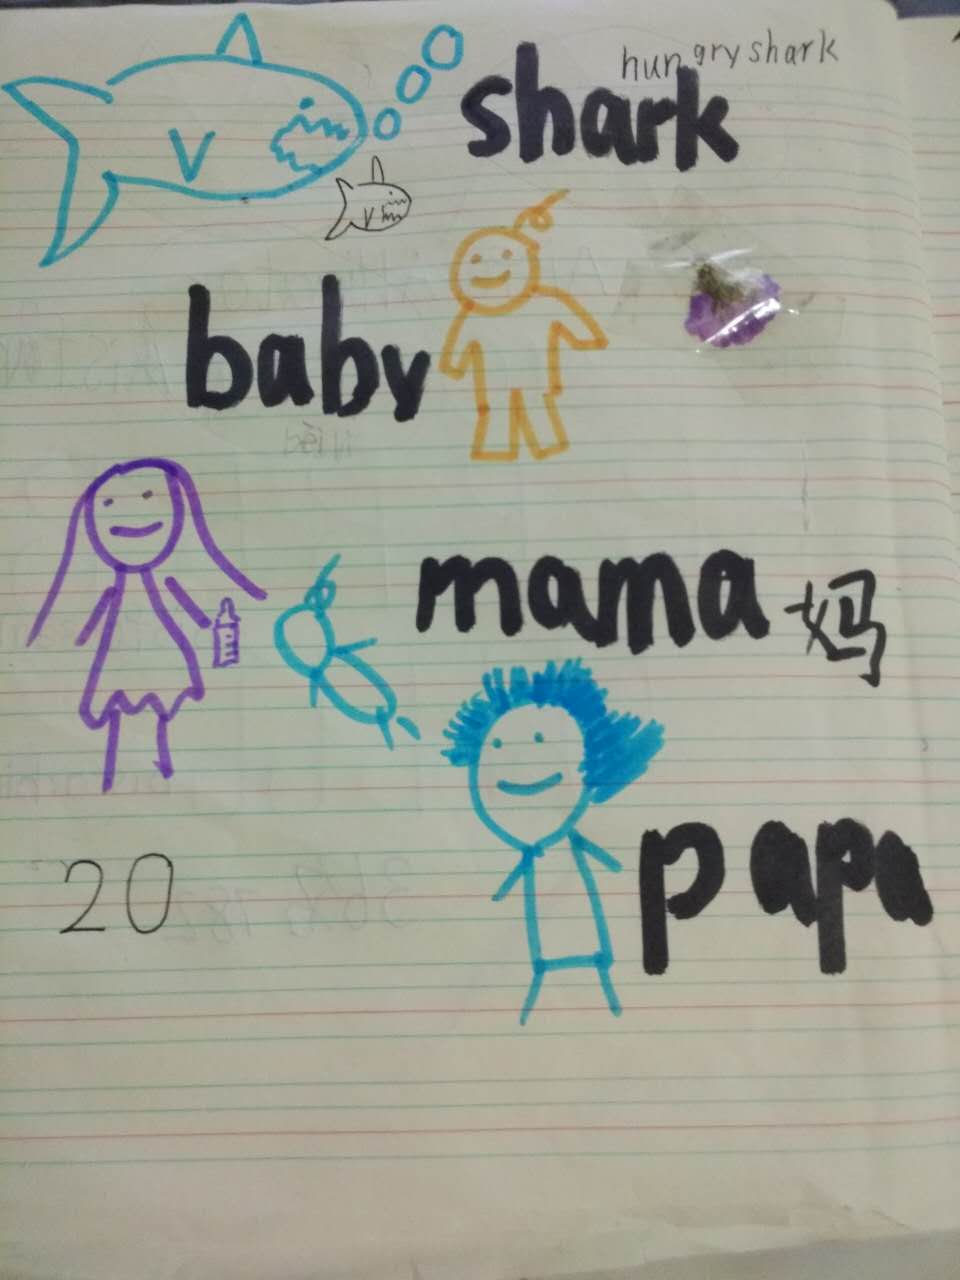 hungry shark
shark
V
V
baby
mama 妈
papa
20